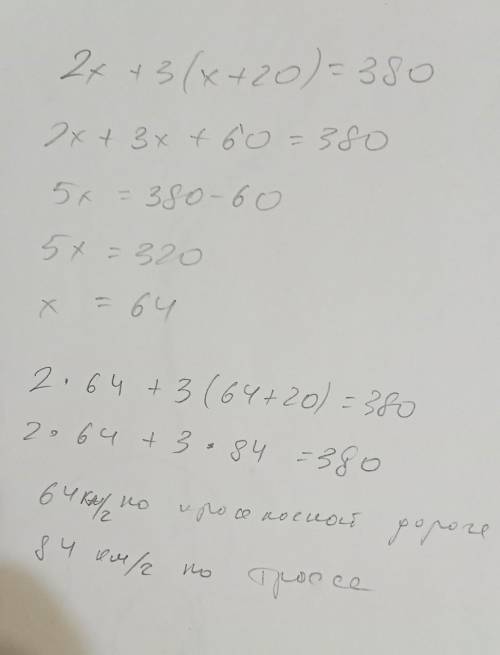 2x + 3(x+20) = 380
2x + 3x + 60 = 380
5x = 380-60
5x = 320
x = 64
2 · 64 + 3(64+20) = 380
2 · 64 + 3 · 84 = 380
64 км/г по дороге
84 км/г по трассе